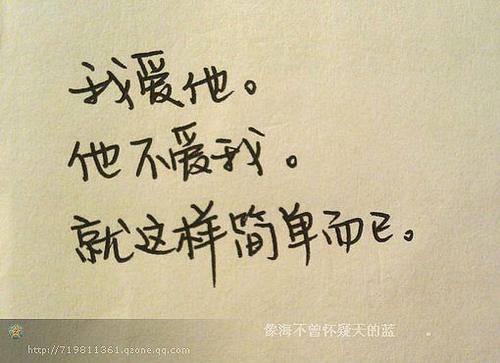 我爱他。
他不爱我。
就这样简单而已。
像海不曾怀疑天的蓝 。
http://719811361.qzone.qq.com